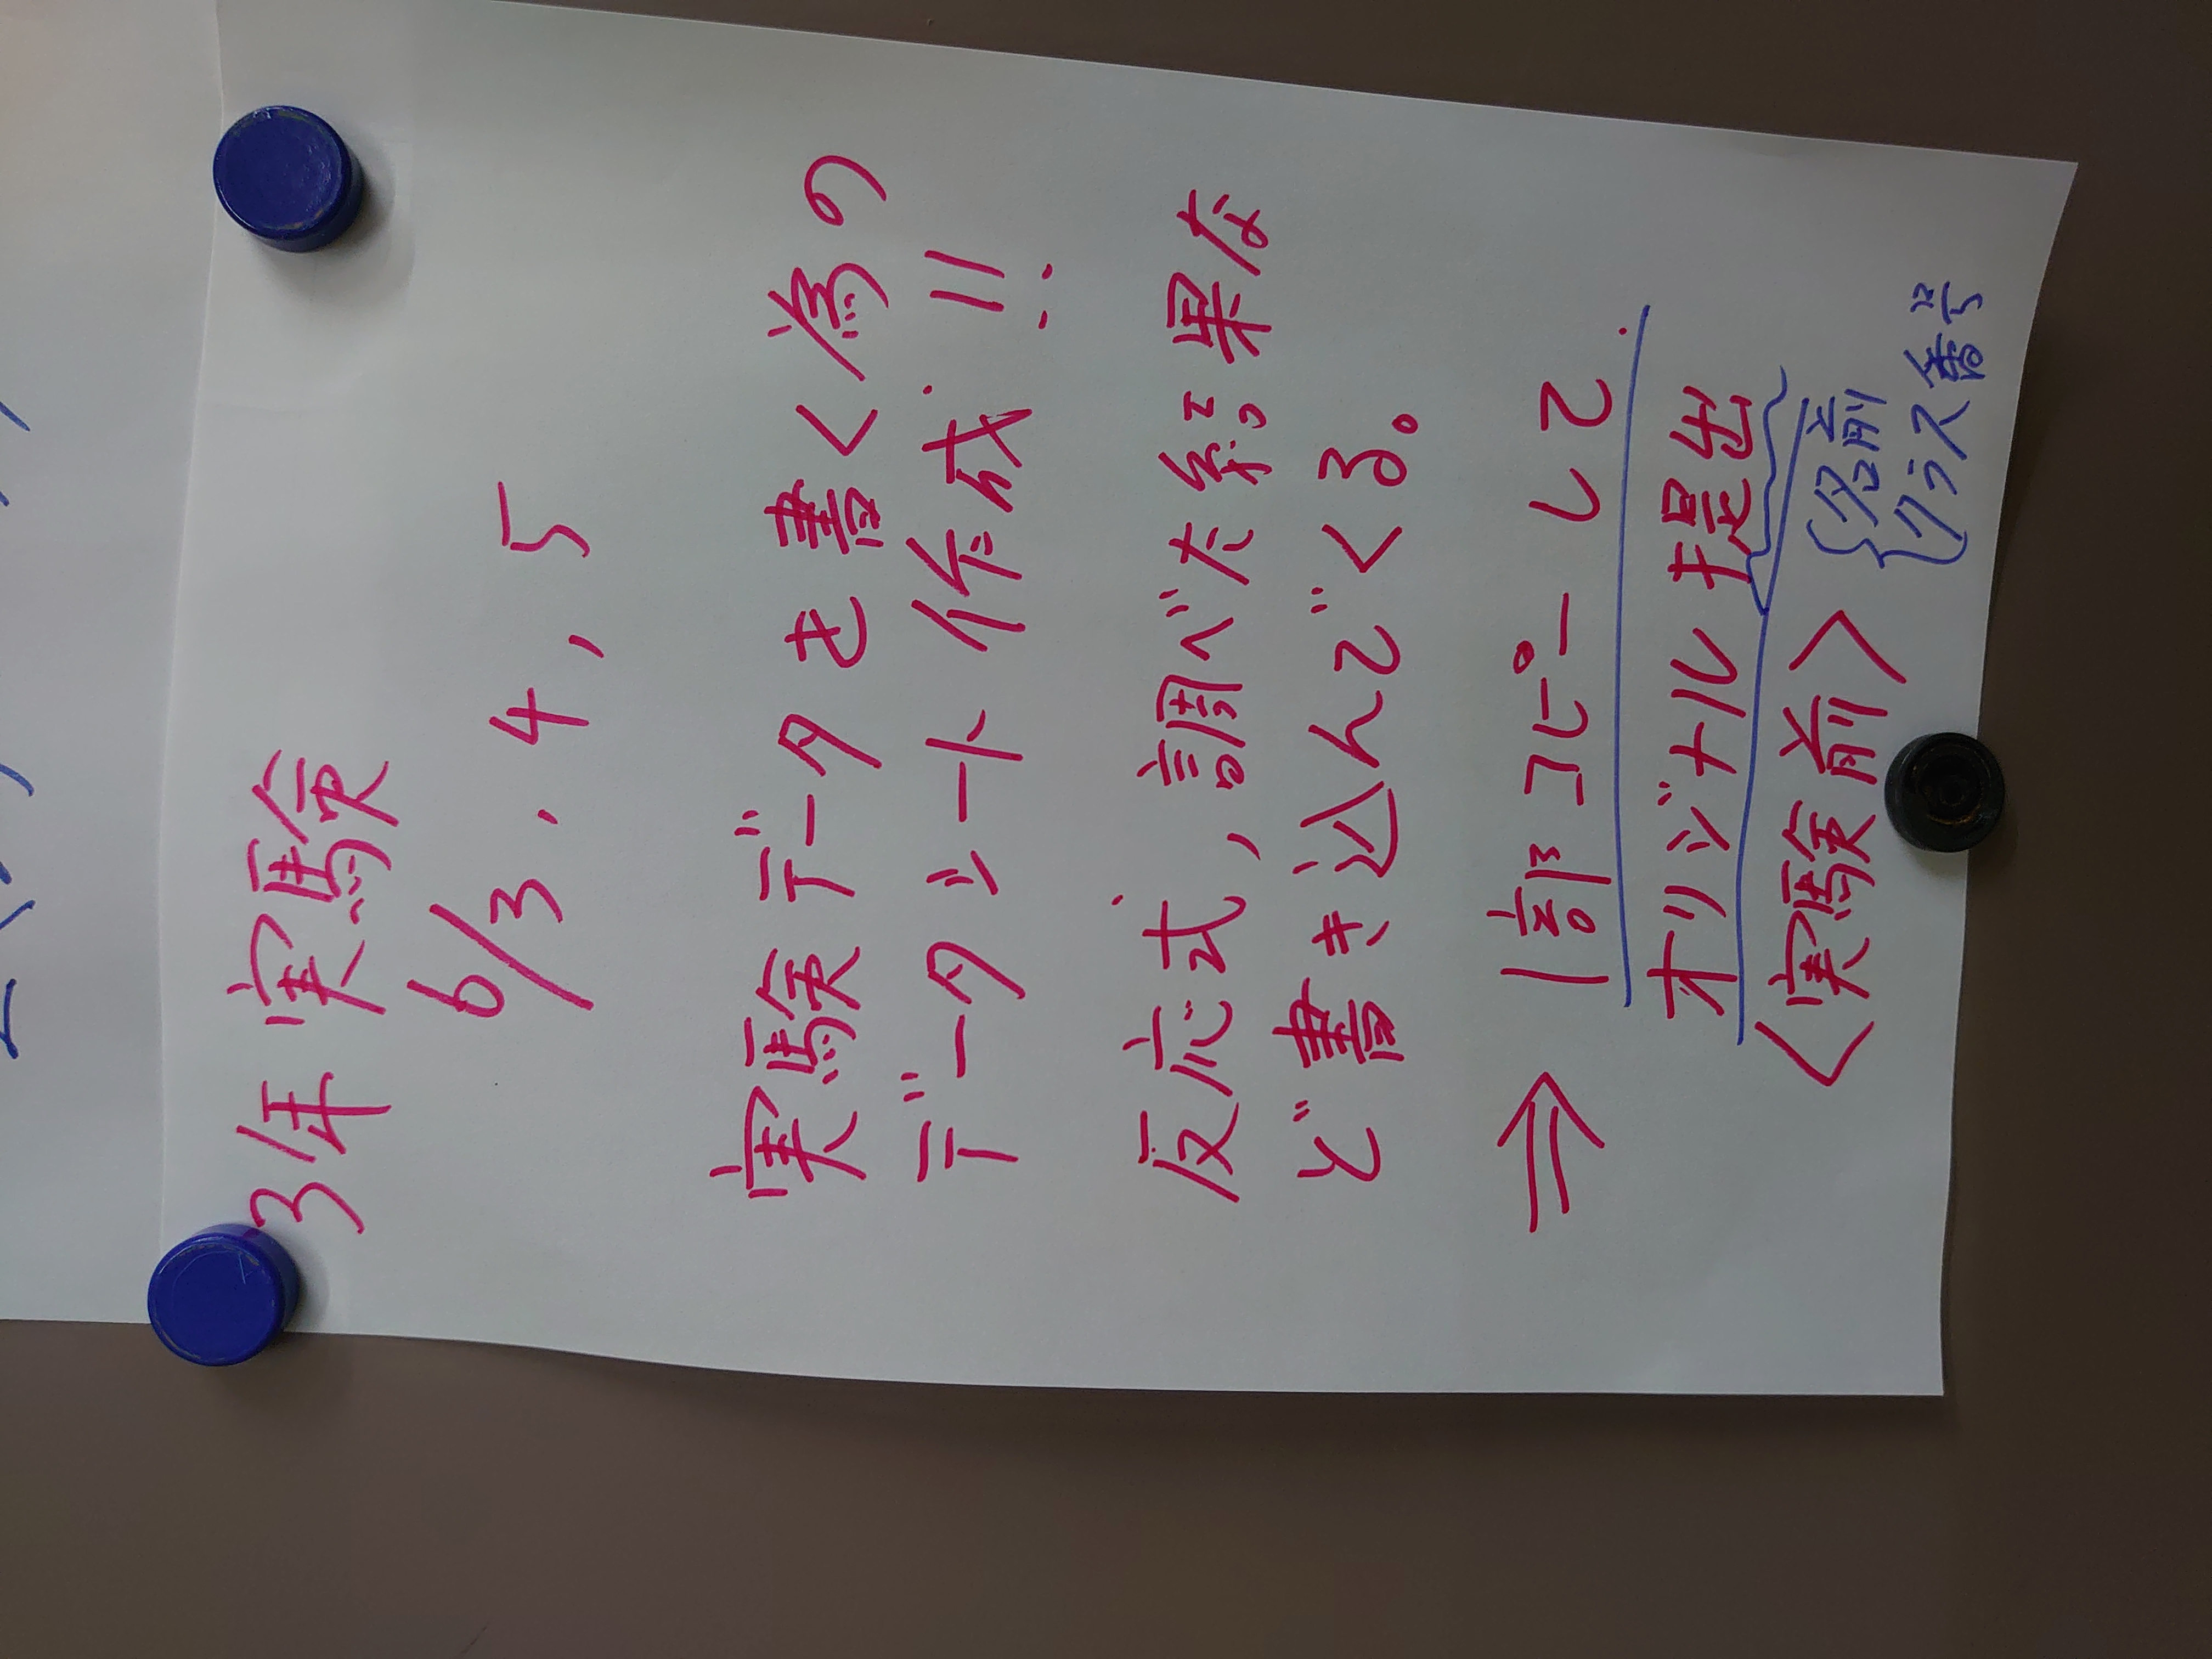 3年実験
6/3, 4, 5
実験データを書く為の
データシート作成!!
反応式, 調べた結果な
ど書き込んでくる。
⇒ 1部コピーして.
オリジナル提出
〈実験前〉
{名前
クラス番号